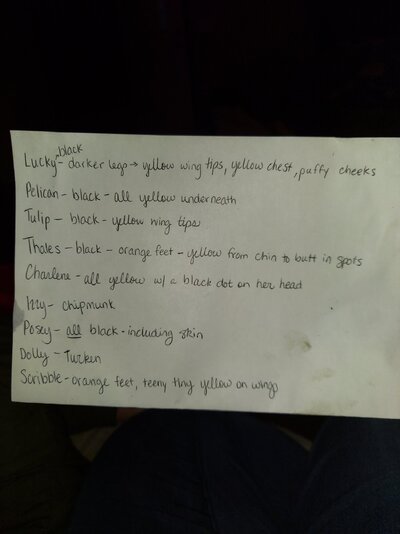 black
Lucky - darker legs → yellow wing tips, yellow chest, puffy cheeks
Pelican - black - all yellow underneath
Tulip - black - yellow wing tips
Thales - black - orange feet - yellow from chin to butt in spots
Charlene - all yellow w/ a black dot on her head
Izzy - chipmunk
Posey - all black - including skin
Dolly - Turken
Scribble - orange feet, teeny tiny yellow on wings